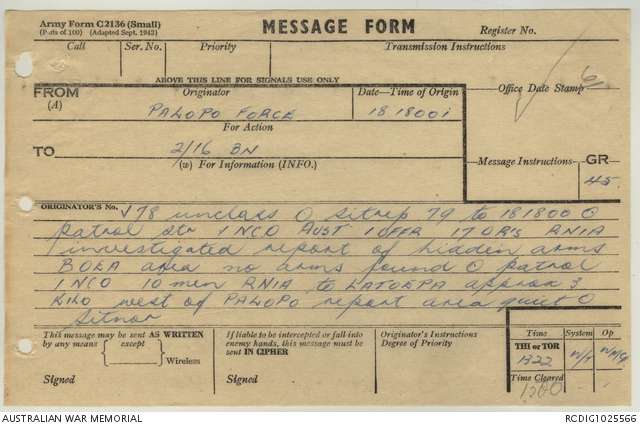 Army Form C2136 (Small)
(Pads of 100) (Adapted Sept. 1942)
MESSAGE FORM
Register No.
Call
Ser. No.
Priority
Transmission Instructions
ABOVE THIS LINE FOR SIGNALS USE ONLY
FROM
(A)
Originator
Date-Time of Origin
Office Date Stamp
PALOPO FORCE
18 1800 I
For Action
TO
2/16 BN
(w) For Information (INFO.)
Message Instructions
GR
45.
ORIGINATOR'S No.
J78 unclass O sitrep 79 to 181800 O
patrol str 1 NCO AUST 1 OFFR 17 ORs RNIA
investigated report of hidden arms
BOEA area no arms found O patrol
1 NCO 10 men RNIA to LATOEPA approx 3
kilo west of PALOPO report area quiet O
sitnor
This message may be sent AS WRITTEN
by any means
except
Wireless
Signed
If liable to be intercepted or fall into
enemy hands, this message must be
sent IN CIPHER
Signed
Originator's Instructions
Degree of Priority
Time
System
Op
THI or TOR
1322
W/T
Time Cleared
AUSTRALIAN WAR MEMORIAL
RCDIG1025566